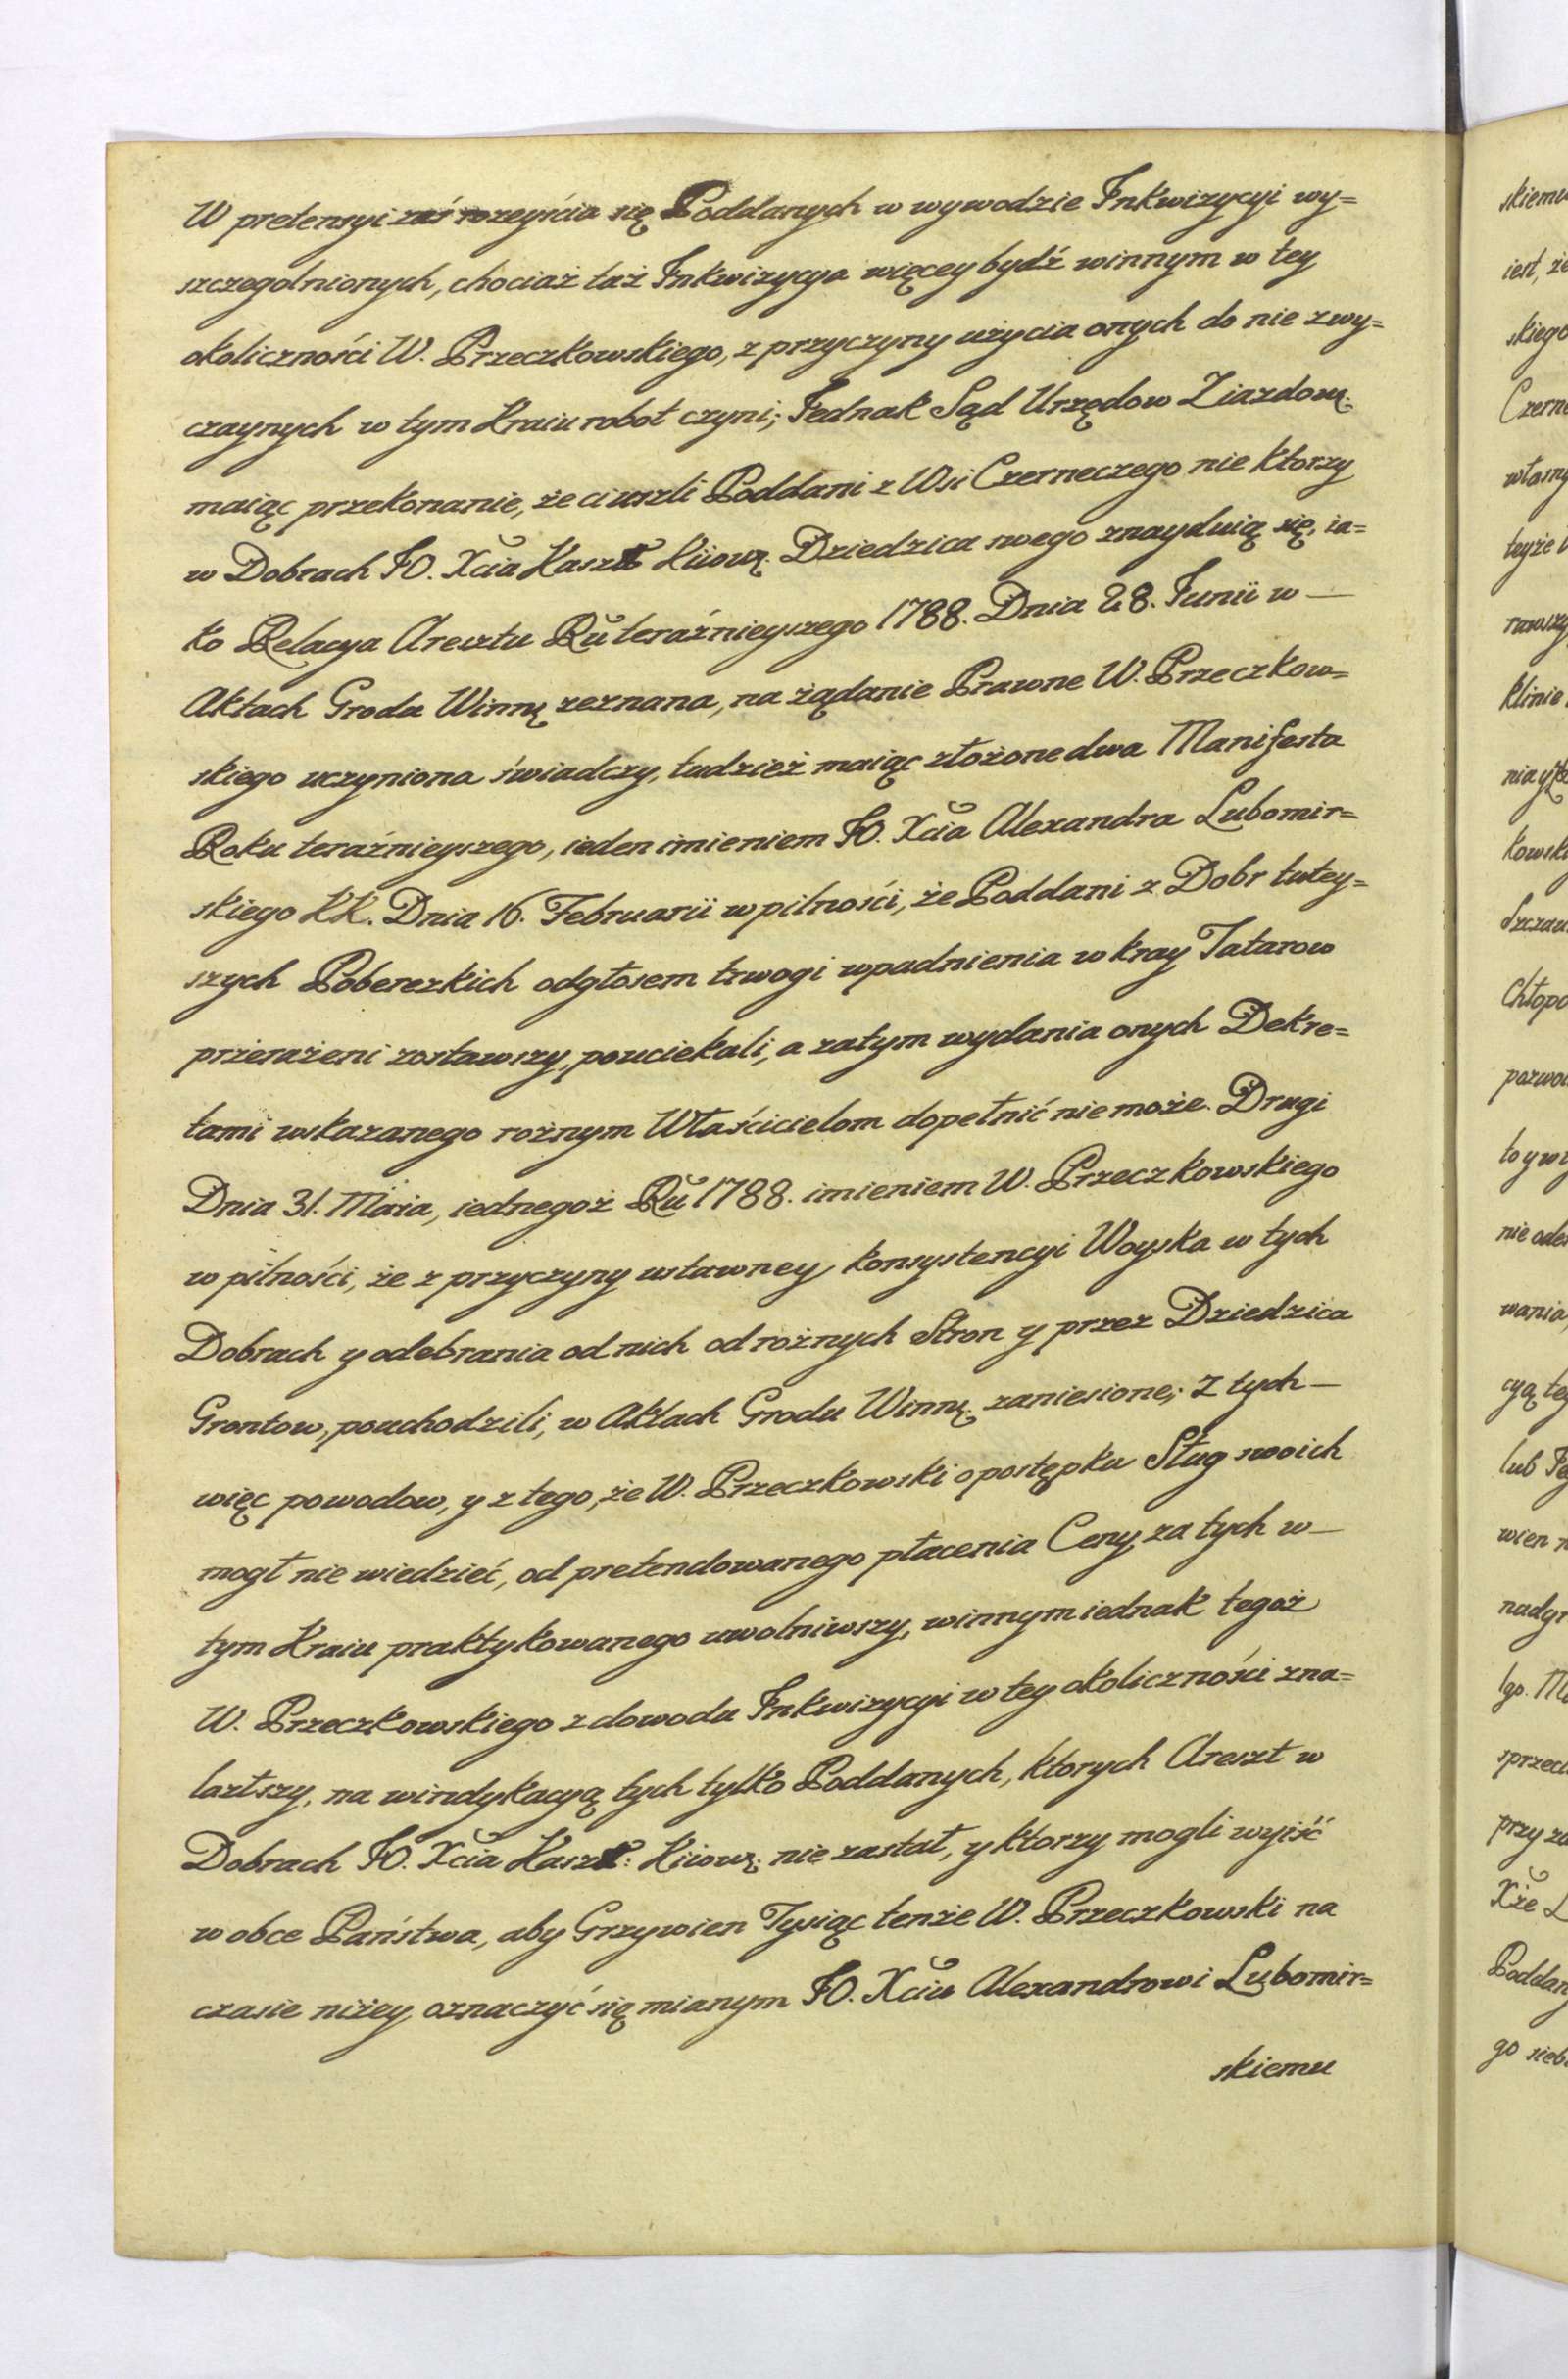 W pretensyi zaś rozeyścia się Poddanych w wywodzie Inkwizycyi wy=
szczegolnionych, chociaż taż Inkwizycya więcey bydź winnym w tey
okoliczności W. Przeczkowskiego, z przyczyny użycia onych do nie zwy=
czaynych w tym Kraiu robot czyni; Jednak Sąd Urzędow Ziazdowę.
maiąc przekonanie, że ci uszli Poddani z Wsi Czerneczego nie ktorzy
w Dobrach JO. Xcia Kaszt Kiiowę. Dziedzica swego znayduią się, ia=
ko Relacya Aresztu Ru teraźnieyszego 1788. Dnia 28. Junii w —
Aktach Grodu Winnę zeznana, na żądanie Prawne W. Przeczkow=
skiego uczyniona świadczy, tudzież maiąc złożone dwa Manifesta
Roku teraźnieyszego, ieden imieniem JO. Xcia Alexandra Lubomir=
skiego KK. Dnia 16. Februarii w pilności, że Poddani z Dobr tutey=
szych Pobereżkich odgłosem trwogi wpadnienia w kray Tatarow
przerażeni zostawszy, pouciekali, a zatym wydania onych Dekre=
tami wskazanego rożnym Właścicielom dopełnić nie może. Drugi
Dnia 31. Maia, iednegoż Ru 1788. imieniem W. Przeczkowskiego
w pilności, że z przyczyny ustawney konsystencyi Woyska w tych
Dobrach y odebrania od nich od rożnych Stron y przez Dziedzica
Grontow, pouchodzili, w Aktach Grodu Winnę. zaniesione; Z tych —
więc powodow, y z tego, że W. Przeczkowski o postępku Sług swoich
mogł nie wiedzieć, od pretendowanego płacenia Ceny, za tych w —
tym Kraiu praktykowanego uwolniwszy, winnym iednak tegoż
W. Przeczkowskiego z dowodu Inkwizycyi w tey okoliczności zna=
lazłszy, na windykacyą tych tylko Poddanych, ktorych Areszt w
Dobrach JO. Xcia Kaszt: Kiiowę. nie zastał, y ktorzy mogli wyiść
w obce Państwa, aby Grzywien Tysiąc tenże W. Przeczkowski na
czasie niżey oznaczyć się mianym JO. Xciu Alexandrowi Lubomir=
skiemu